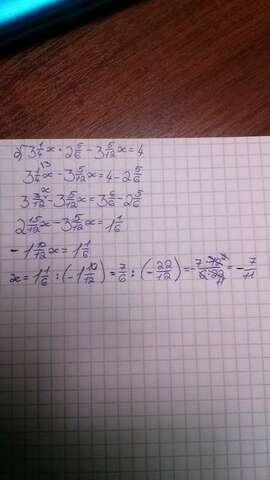 2) 3 1/4 x + 2 5/6 - 3 5/12 x = 4
3 1/4 x - 3 5/12 x = 4 - 2 5/6
3 3/12 x - 3 5/12 x = 3 6/6 - 2 5/6
2 15/12 x - 3 5/12 x = 1 1/6
- 1 10/12 x = 1 1/6
x = 1 1/6 : (- 1 10/12) = 7/6 : (- 22/12) = - 7·12/6·22 = - 7/11